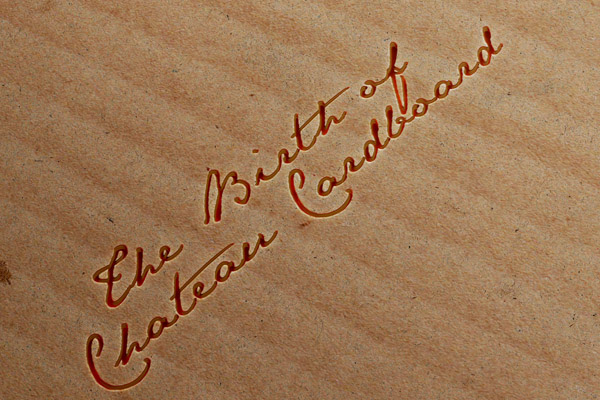 The Birth of
Chateau Cardboard